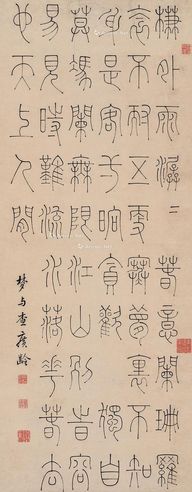 簾外雨潺二春意闌珊羅
衾不耐五更寒夢裏不知
身是客一晌貪歡獨自
莫憑闌無限江山別時容
易見時難流水落花春去
也天上人間
梦与查 齡